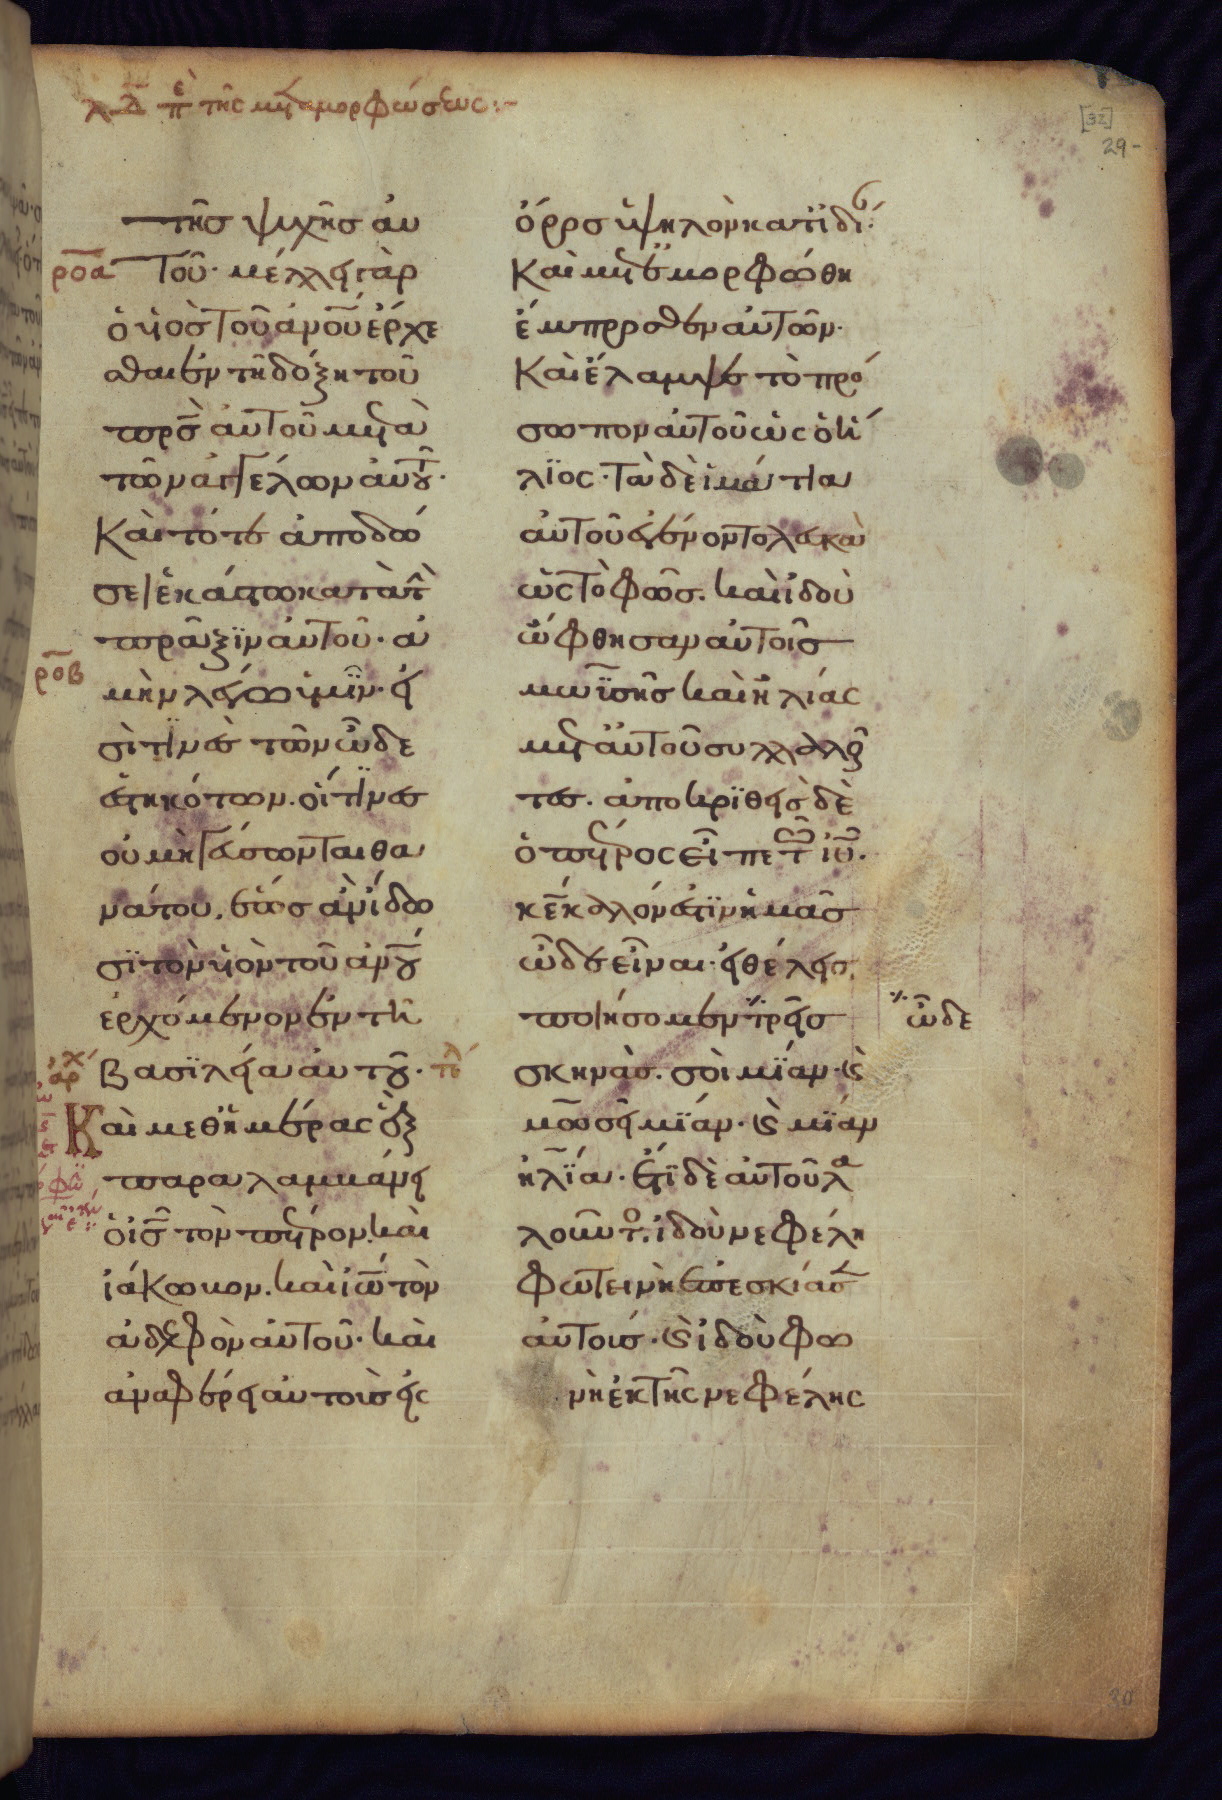 λδ πε τῆς μεταμορφώσεως:-
[32]
29-
τῆς ψυχῆς αὐ
ροα τοῦ· μέλλει γὰρ
ὁ υἱὸς τοῦ ἀνου ἔρχε
σθαι ἐν τῆ δόξη τοῦ
πρς αὐτοῦ μετὰ
τῶν ἀγγέλων αὐτοῦ·
Καὶ τότε ἀποδώ
σει ἑκάστω κατὰ τὴν
πράξϊν αὐτοῦ· ἀ
ροβ
μὴν λέγω ὑμῖν· εἰ
σὶ τϊνὲς τῶν ὧδε
ἑστηκότων. οἵτϊνες
οὐ μὴ γεύσωνται θα
νάτου. ἕως ἂν ἴδω
σϊ τὸν υἱὸν τοῦ ἀνου
ἐρχόμενον ἐν τῆ
Βασϊλεία αὐτοῦ· τελ
αρχ
Καὶ μεθ ἡμέρας ἓξ
παραλαμβάνει
ὁ ις τὸν πετρον. καὶ
ἰάκωβον. καὶ ιω τὸν
ἀδελφὸν αὐτοῦ· καὶ
ἀναφέρει αὐτοὺς εἰς
ὄρος ὑψηλὸν κατϊδί·
Καὶ μετεμορφώθη
ἔμπροσθεν αὐτῶν·
Καὶ ἔλαμψε τὸ πρό
σωπον αὐτοῦ ὡς ὁ ἥ
λϊος· Τὰ δὲ ἱμάτια
αὐτοῦ ἐγένοντο λευκὰ
ὡς τὸ φῶς. καὶ ἰδοὺ
ὤφθησαν αὐτοῖς
μωϊσῆς καὶ ἠλίας
μετ αὐτοῦ συλλαλοῦν
τες. ἀποκρϊθεὶς δὲ
ὁ πετρος εἶπε τῶ ιυ.
κε καλόν ἐστϊν ἡμᾶς
ὧδε εἶναι· εἰ θέλεις
ποιήσομεν ⁒ τρεῖς
⁒ ὧδε
σκηνὰς. σοὶ μϊαν· καὶ
μωσεῖ μϊαν· καὶ μϊαν
ηλϊα· Ἔτϊ δὲ αὐτοῦ λα
λοῦντο. ἰδοὺ νεφέλη
φωτεινὴ ἐπεσκίασεν
αὐτοὺς· καὶ ἰδοὺ φω
νὴ ἐκ τῆς νεφέλης
30